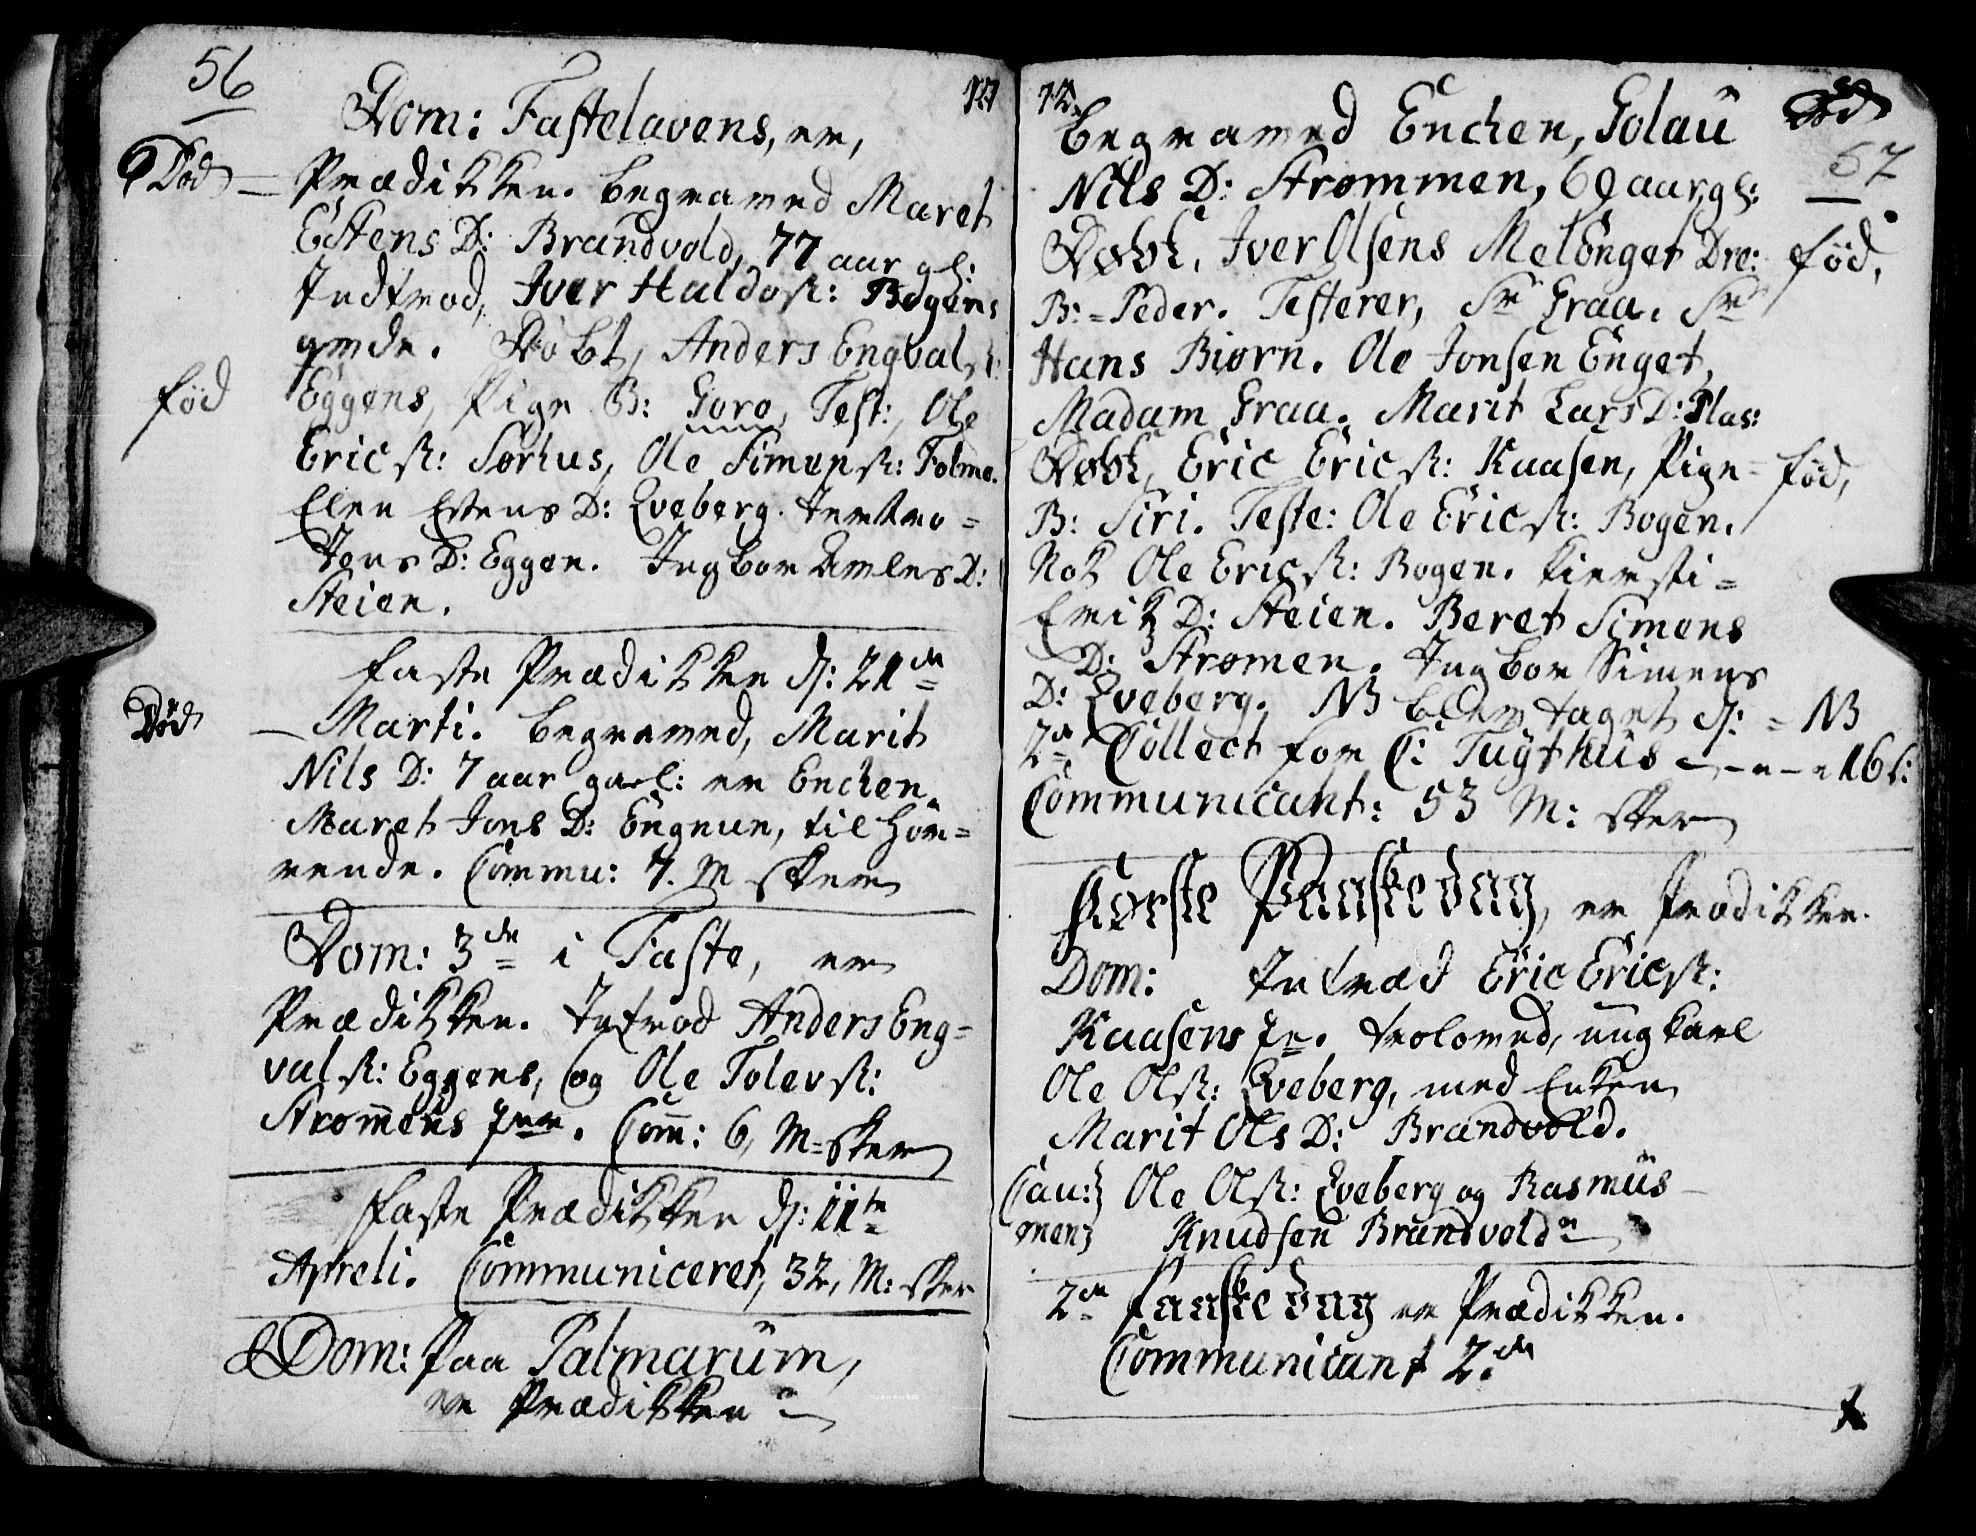 56
Dom: Fastelavens, er,
Død
Prædikken. begraved Maret
Estens D: Brandvold, 77 aar gl:
Indtrod, Iver Haldosn: Bogens
qvinde. Døbt, Anders Engvals:
fød
Eggens, Pige B: Goro, Test: Ole
Ericsn: Sørhus, Ole Simensn: Tolmo.
Elen Estens D: Qveberg.
Jons D: Eggen. Ingbor Arnles D:
Steien.
faste Prædikken d: 21de
Død
Marti. begraved, Marit
Nils D: 7 aar gael: er Enchen
Maret Jons D: Engnun, tilhøn-
rende. Commu: 7. M sker
Dom: 3de i Faste, er
Prædikken. Introd Anders Eng-
valsn: Eggens, og Ole Tolevsn:
Strømens qver. Com: 6, M-sker
faste Prædikken d: 11te
Apreli. Communiceret, 32, M: sker
Dom: Paa Palmarum,
er Prædikken
12
begraved Enchen, Golau
Død
57
Nils D: Strømmen, 69 aar gl:
Døbt, Iver Olsens Melønget Dre:
fød,
B:=Peder. Testerer, Sr Graa. Sr
Hans Biørn. Ole Jonsen Enget,
Madam Graa. Marit Lars D: Plas:
Døbt, Eric Ericsn: Kaasen, Pige-
fød,
B: Siri. Teste: Ole Ericsn: Bogen.
Nok Ole Ericsn: Bogen. Kiersti=
Erik D: Steien. Beret Simens
D: Strømen. Ingbor Simens
D: Qveberg. NB blev taget d: =
NB
2de Collect for C: Tugthus
16 s:
Communicant: 53 M: sker
Første Paaskedag, er Prædikken.
Dom: Intræd Eric Ericsn:
Kaasens Trolowed, ungkarl
Ole Olsn: Qveberg, med Enken
Marit Ols D: Brandvold.
Cau: Ole Olsn: Qveberg og Rasmus
men Knudsen Brandvold
2den Paaskedag er Prædikken.
Communicant 2de